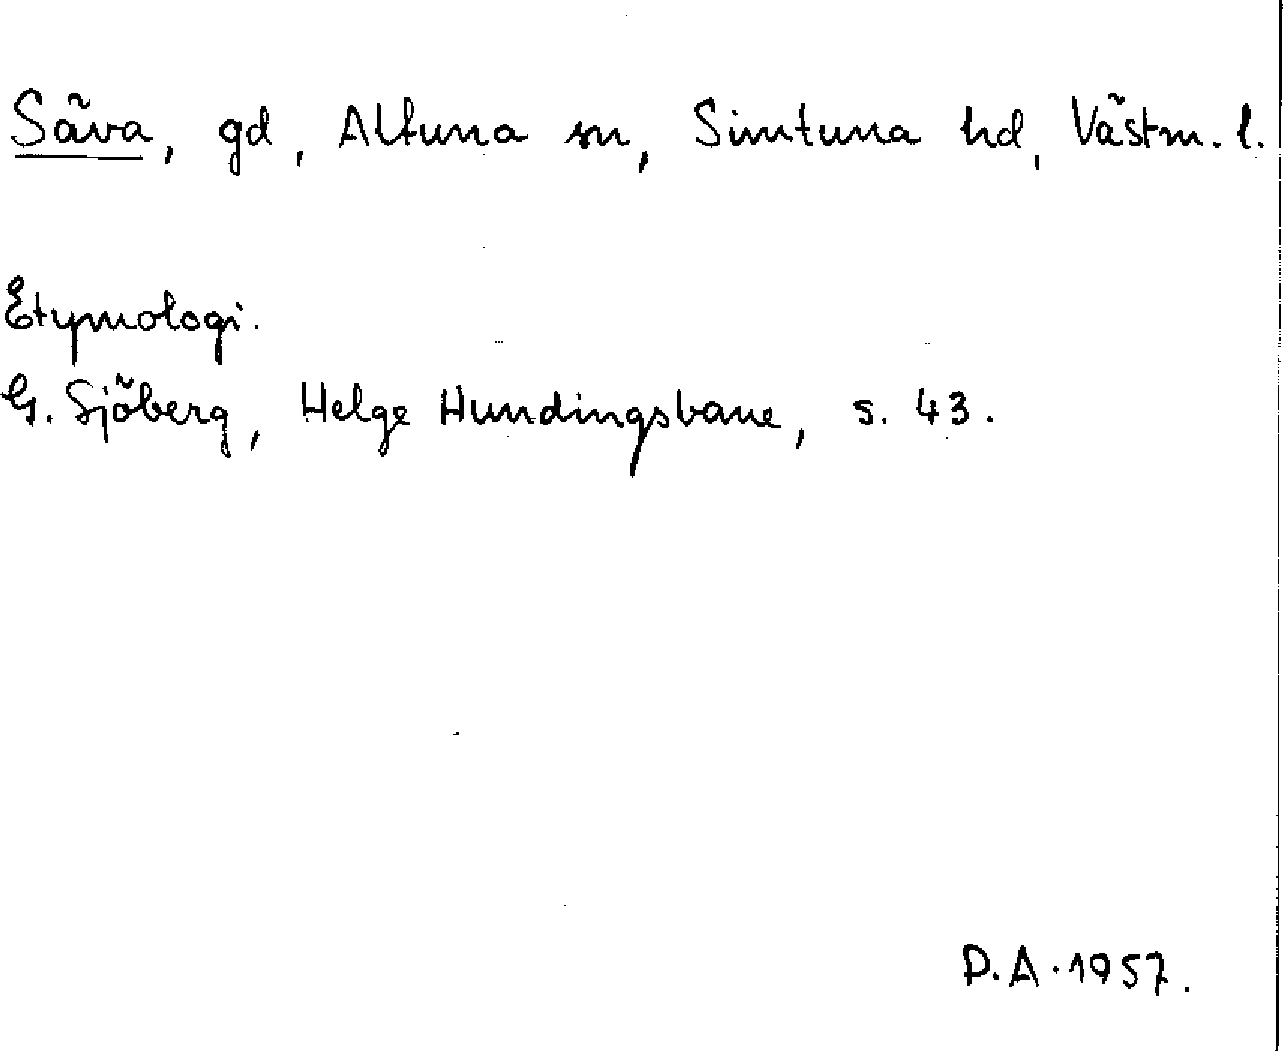 Säva, gd, Altuna sn, Simtuna hd, Västm. l.
Etymologi.
G. Sjöberg, Helge Hundingsbane, s. 43.
D.A. 1957.